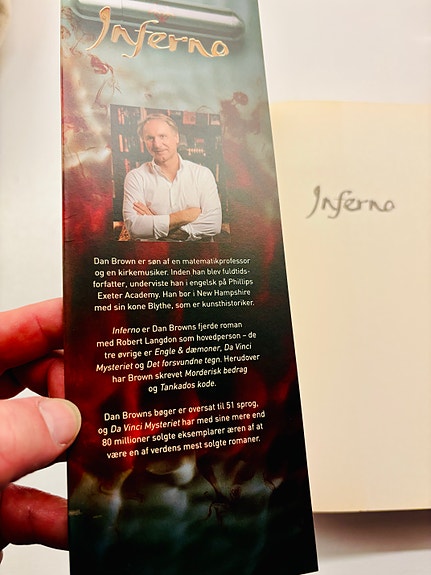 Inferno
Dan Brown er søn af en matematikprofessor
og en kirkemusiker. Inden han blev fuldtids-
forfatter, underviste han i engelsk på Phillips
Exeter Academy. Han bor i New Hampshire
med sin kone Blythe, som er kunsthistoriker.
Inferno er Dan Browns fjerde roman
med Robert Langdon som hovedperson – de
tre øvrige er Engle & dæmoner, Da Vinci
Mysteriet og Det forsvundne tegn. Herudover
har Brown skrevet Morderisk bedrag
og Tankados kode.
Dan Browns bøger er oversat til 51 sprog,
og Da Vinci Mysteriet har med sine mere end
80 millioner solgte eksemplarer æren af at
være en af verdens mest solgte romaner.
Inferno